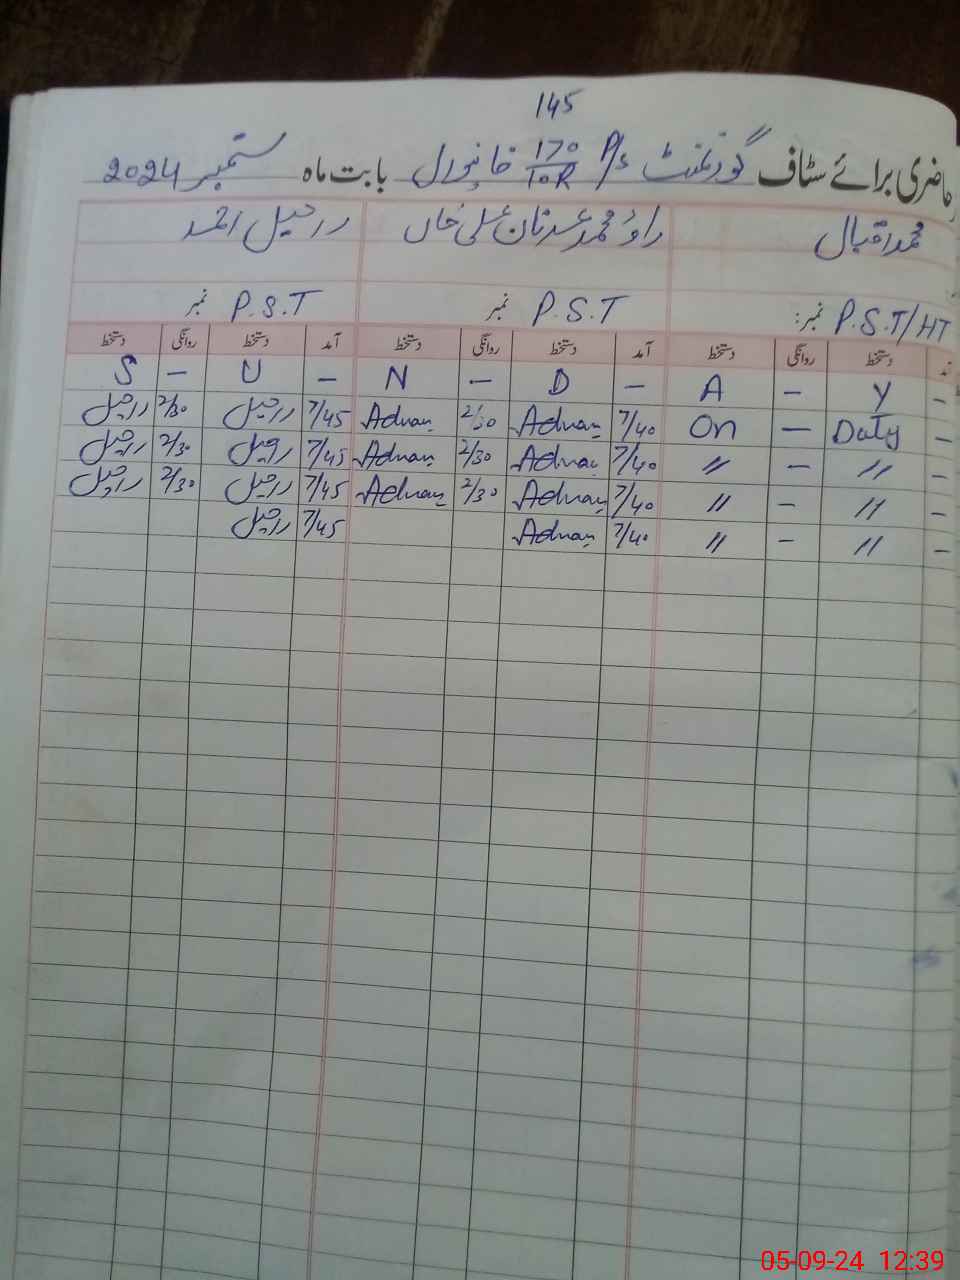 145
حاضری برائے سٹاف گورنمنٹ P/S 170/10R خانیوال بابت ماہ ستمبر 2024
محمد اقبال راؤ محمد عدنان علی خاں راحیل احمد
P.S.T/HT نمبر: P.S.T نمبر P.S.T نمبر
دستخط روانگی دستخط آمد دستخط روانگی دستخط آمد دستخط روانگی دستخط
S - U - N - D - A - Y -
راحیل 2/30 راحیل 7/45 Adnan 2/30 Adnan 7/40 On - Duty -
راحیل 2/30 راحیل 7/45 Adnan 2/30 Adnan 7/40 〃 - 〃 -
راحیل 2/30 راحیل 7/45 Adnan 2/30 Adnan 7/40 〃 - 〃 -
راحیل 7/45 Adnan 7/40 〃 - 〃 -
05-09-24 12:39